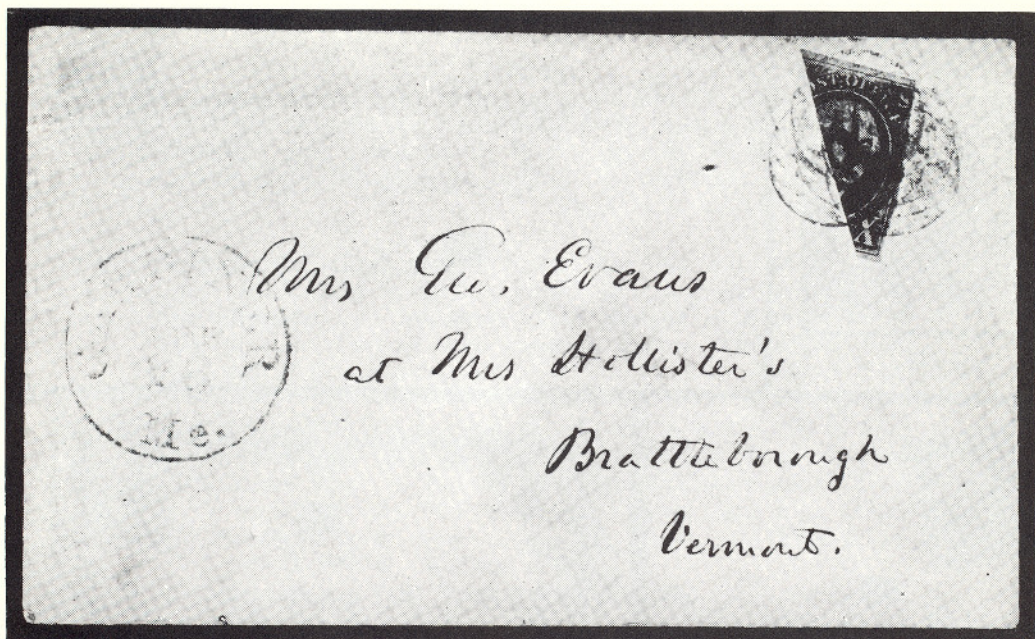 Mrs Geo. Evans
at Mrs Hollister's
Brattleborough
Vermont.
Me.
X